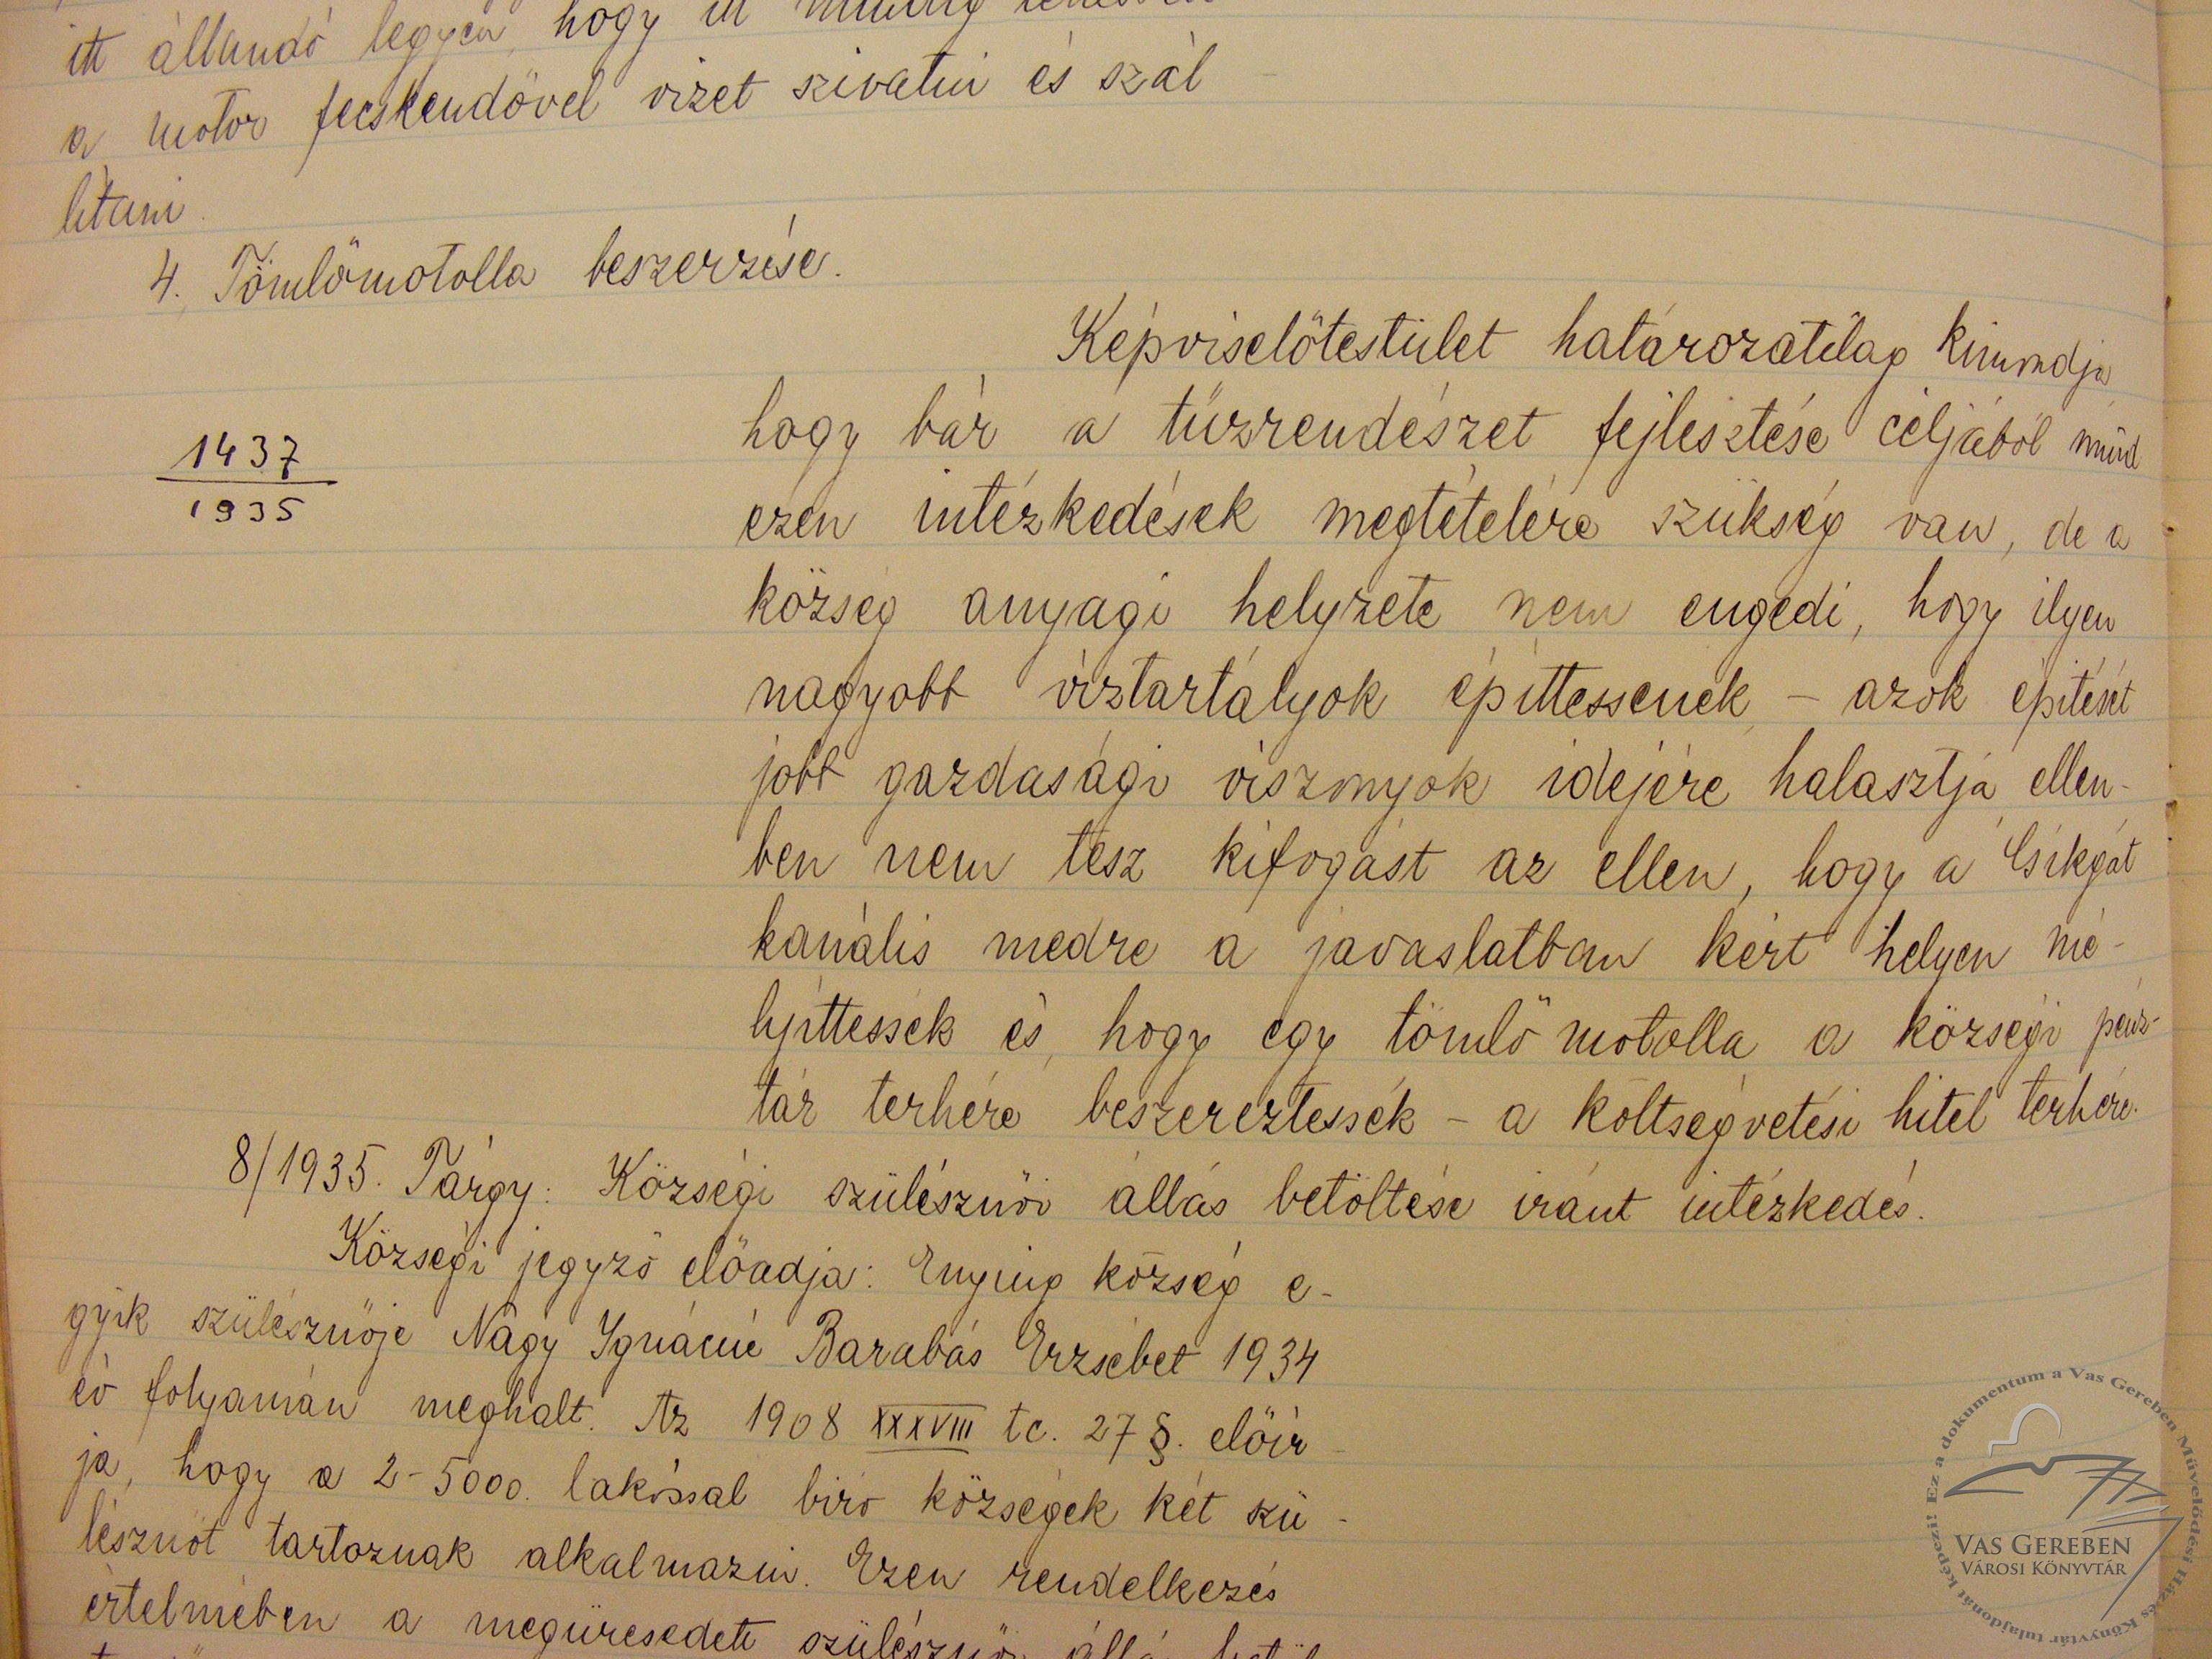 itt állandó legyen, hogy itt mindig
a motor fecskendővel vizet szivatni és szál-
litani.
4. Tömlőmotolla beszerzése.
Képviselőtestület határozatilag kimondja
hogy bár a tűzrendészet fejlesztése céljából mind
1437
1935
ezen intézkedések megtételére szükség van, de a
község anyagi helyzete nem engedi, hogy ilyen
nagyobb víztartályok építtessenek, - azok építését
jobb gazdasági viszonyok idejére halasztja ellen-
ben nem tesz kifogást az ellen, hogy a Csíkgát
kanális medre a javaslatban kért helyen mé-
lyíttessék és, hogy egy tömlő motolla a községi pénz-
tár terhére beszereztessék - a költségvetési hitel terhére.
8/1935. Tárgy: Községi szülésznői állás betöltése iránt intézkedés.
Községi jegyző előadja: Enying község e-
gyik szülésznője Nagy Ignácné Barabás Erzsébet 1934
év folyamán meghalt. Az 1908 XXXVIII tc. 27 §. előír-
ja, hogy a 2-5000. lakóssal biró községek két szü-
lésznőt tartoznak alkalmazni. Ezen rendelkezés
értelmében a megüresedett szülésznői
Ez a dokumentum a Vas Gereben Művelődési Ház és Könyvtár tulajdonát képezi!
VAS GEREBEN
VÁROSI KÖNYVTÁR